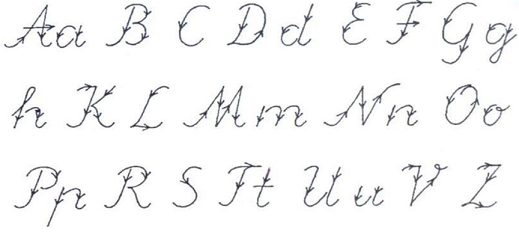 Aa B C D d E F G g
h K L M m N n O o
P p R S T t U u V Z